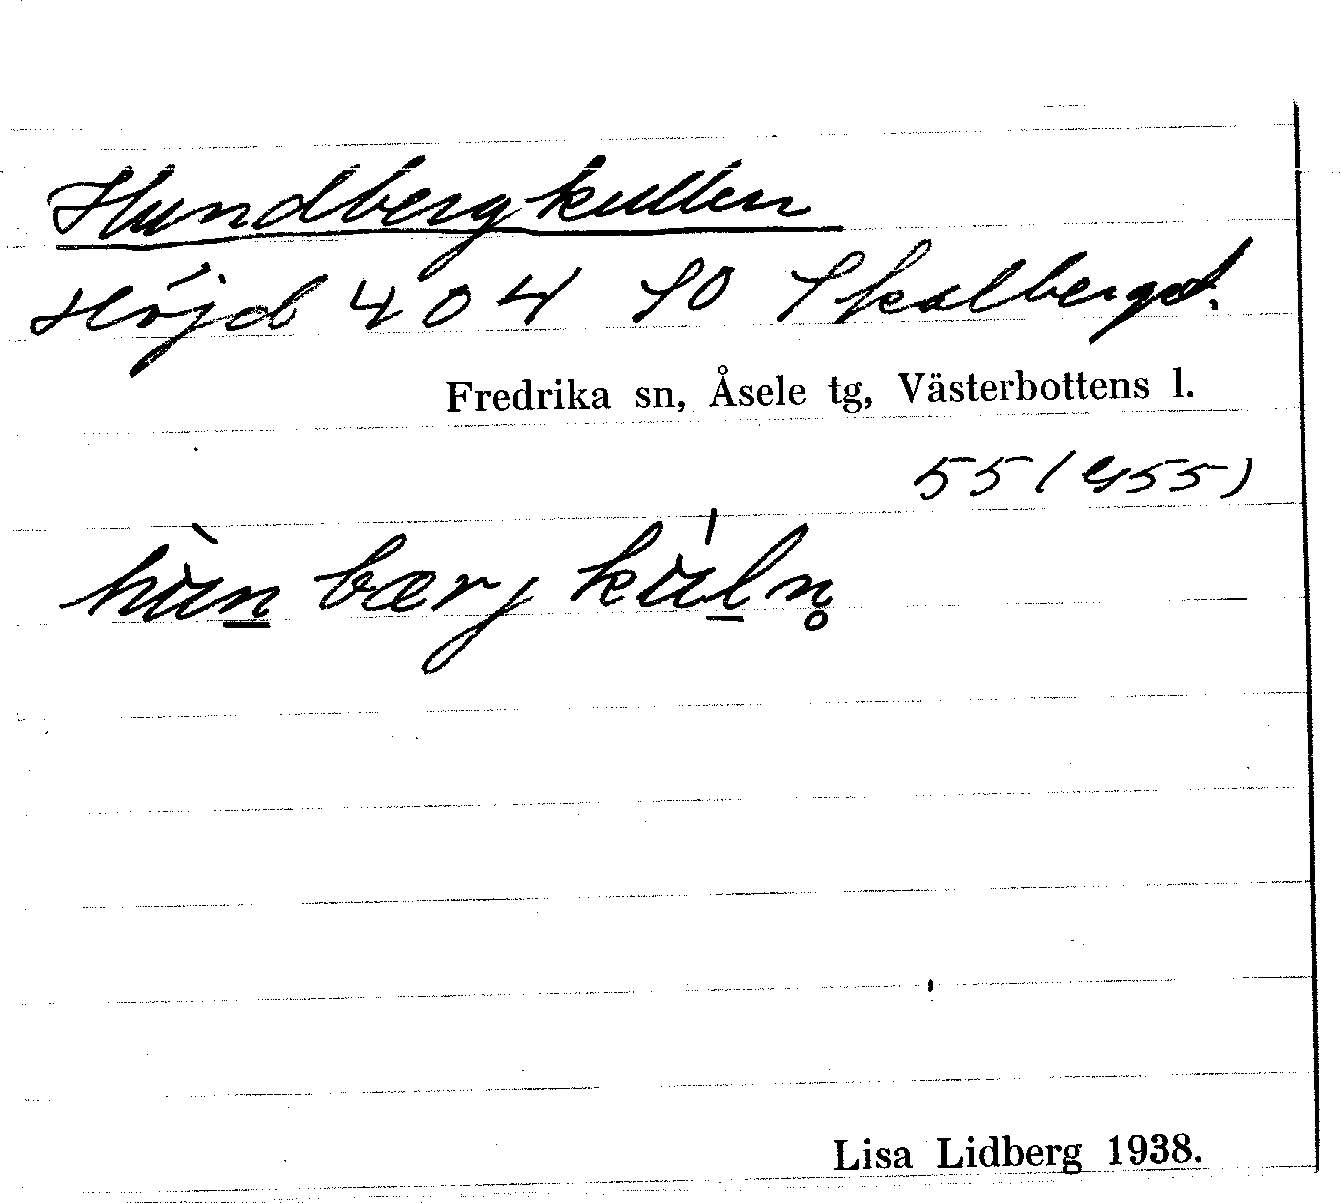 Hundbergkullen
Höjd 404 SO Skalberget.
Fredrika sn, Åsele tg, Västerbottens l.
55 (455)
hùn̲ bærj kúl̲n̥
Lisa Lidberg 1938.